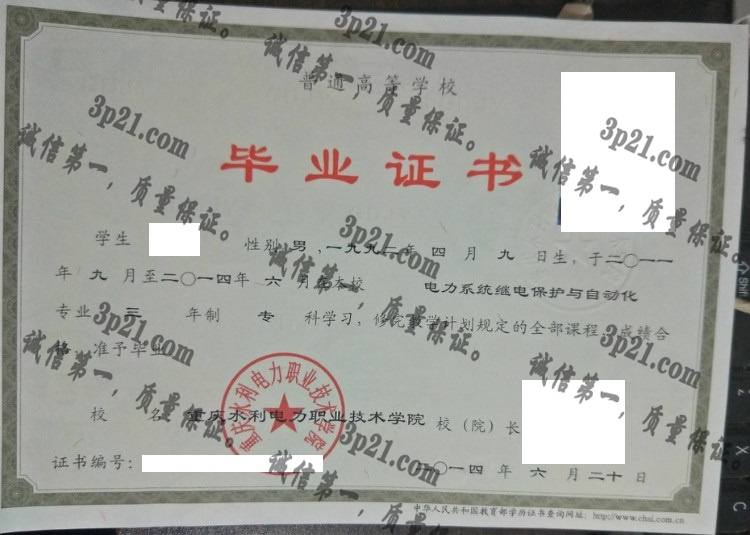 普通高等学校
毕业证书
学生 性别 男 ，一九九二年 四 月 九 日生，于二〇一一
年 九 月至二〇一四年 六 月在本校 电力系统继电保护与自动化
专业 三 年制 专 科学习，修完教学计划规定的全部课程，成绩合
格，准予毕业。
校 名：重庆水利电力职业技术学院 校（院）长
证书编号：
二〇一四 年 六 月 二十 日
中华人民共和国教育部学历证书查询网址：http://www.chsi.com.cn
重庆水利电力职业技术学院
3p21.com
诚信第一，质量保证。
3p21.com
诚信第一，质量保证。
3p21.com
诚信第一，质量保证。
3p21.com
诚信第一，质量保证。
3p21.com
诚信第一，质量保证。
3p21.com
诚信第一，质量保证。
3p21.com
诚信第一，质量保证。
Shift
Z
X
C